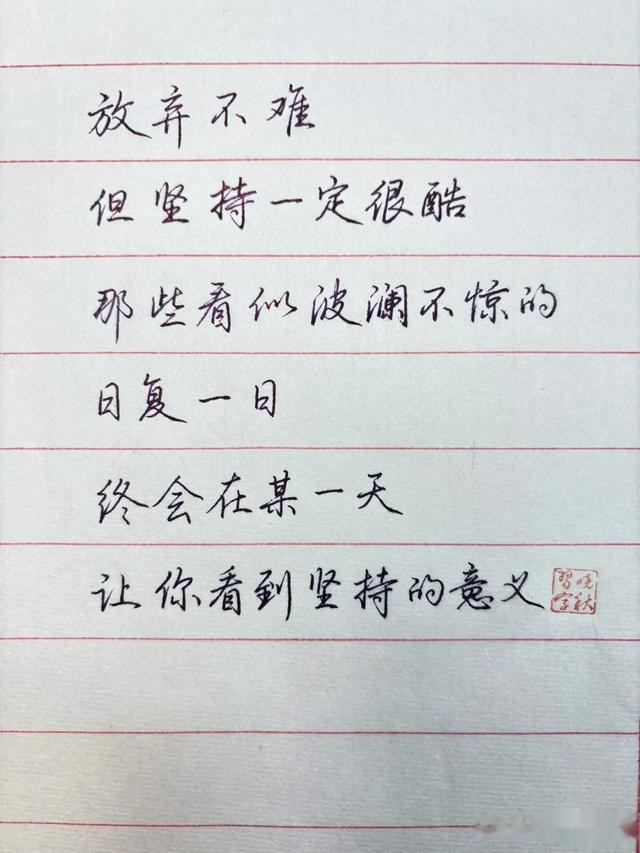 放弃不难
但坚持一定很酷
那些看似波澜不惊的
日复一日
终会在某一天
让你看到坚持的意义
晓秋
习字